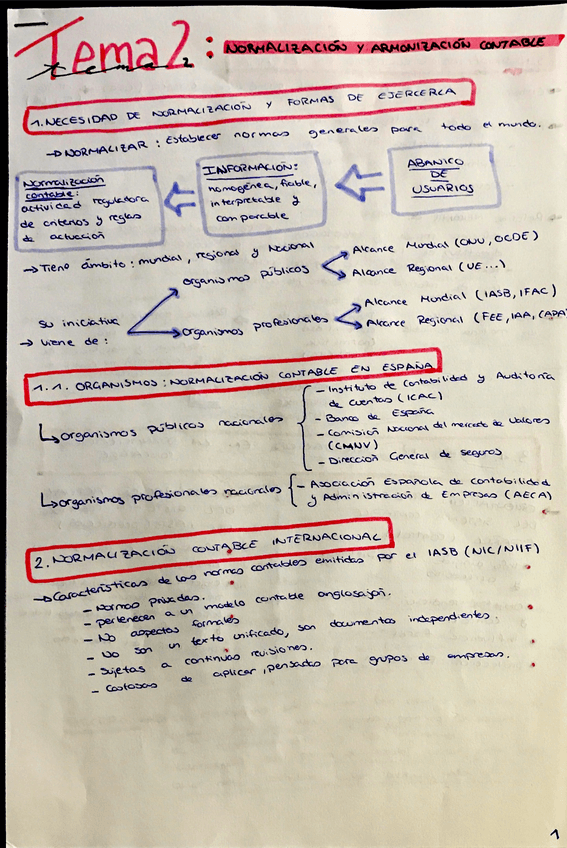 Tema 2: NORMALIZACIÓN Y ARMONIZACIÓN CONTABLE
Tema 2
1. NECESIDAD DE NORMALIZACIÓN Y FORMAS DE EJERCERLA
→ NORMALIZAR : Establecer normas generales para todo el mundo.
Normalización
contable:
actividad reguladora
de criterios y reglas
de actuación
INFORMACIÓN:
homogénea, fiable,
interpretable y
comparable
ABANICO
DE
USUARIOS
→ Tiene ámbito : mundial, regional y Nacional
organismos públicos
Alcance Mundial (ONU, OCDE)
Alcance Regional (UE...)
Su iniciativa
→ viene de :
Organismos profesionales
Alcance Mundial (IASB, IFAC)
Alcance Regional (FEE, IAA, CAPA
1.1. ORGANISMOS : NORMALIZACIÓN CONTABLE EN ESPAÑA
organismos públicos nacionales
- Instituto de Contabilidad y Auditoría
de cuentas (ICAC)
- Banco de España
- Comisión Nacional del mercado de Valores
(CMNV)
- Dirección General de seguros
organismos profesionales nacionales
- Asociación Española de contabilidad
y Administración de Empresas (AECA)
2. NORMALIZACIÓN CONTABLE INTERNACIONAL
→ Características de las normas contables emitidas por el IASB (NIC/NIIF)
- Normas Privadas.
- pertenecen a un modelo contable anglosajón.
- No aspectos formales
- No son un texto unificado, son documentos independientes.
- Sujetas a continuas revisiones.
- Costosas de aplicar, pensadas para grupos de empresas.
1